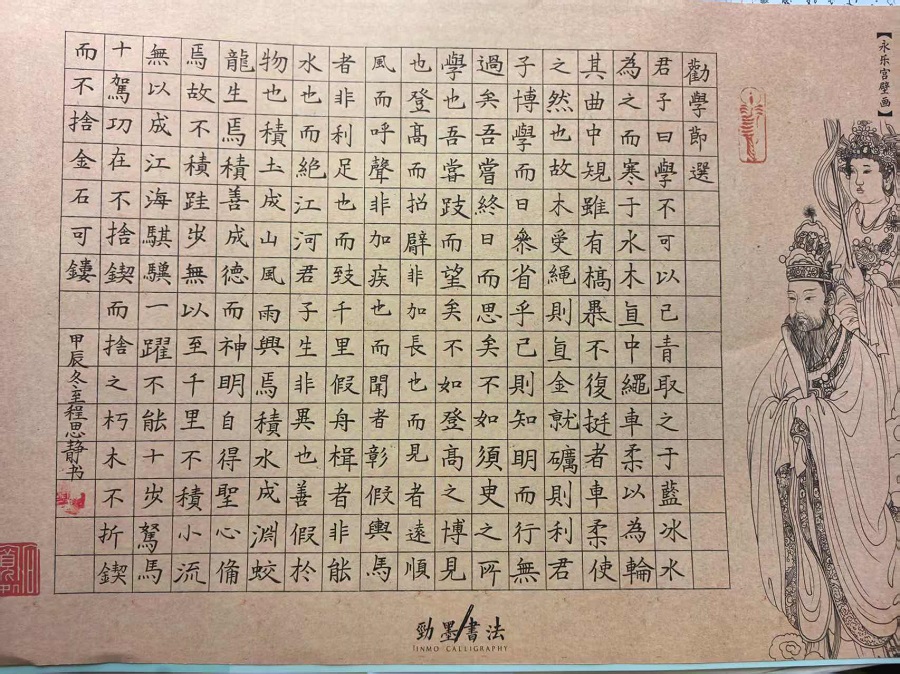 【永乐宫壁画】
勸學節選
君子曰學不可以已青取之于藍冰水
為之而寒于水木直中繩車柔以為輪
其曲中規雖有槁暴不復挺者車柔使
之然也故木受繩則直金就礪則利君
子博學而日參省乎己則知明而行無
過矣吾嘗終日而思矣不如須臾之所
學也吾嘗跂而望矣不如登高之博見
也登高而招臂非加長也而見者遠順
風而呼聲非加疾也而聞者彰假輿馬
者非利足也而致千里假舟楫者非能
水也而絕江河君子生非異也善假於
物也積土成山風雨興焉積水成淵蛟
龍生焉積善成德而神明自得聖心備
焉故不積跬步無以至千里不積小流
無以成江海騏驥一躍不能十步駑馬
十駕功在不捨鍥而捨之朽木不折鍥
而不捨金石可鏤
甲辰冬至程思静书
勁墨書法
JINMO CALLIGRAPHY